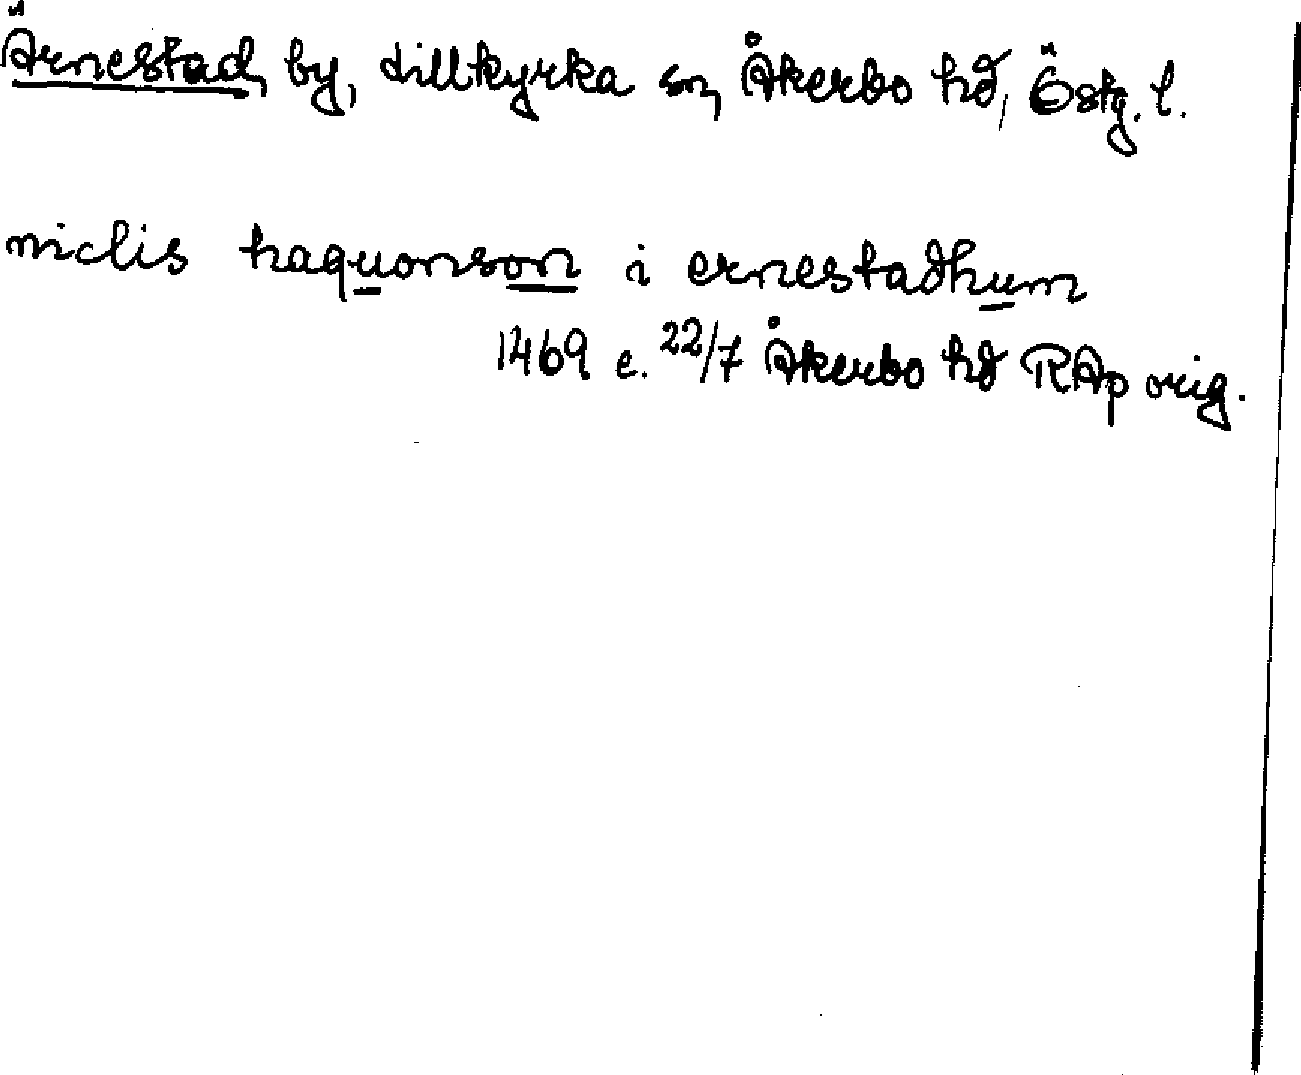 Ärnestad, by, Lillkyrka sn, Åkerbo hd, Östg. l.
niclis haquonson i ernestadhum
1469 e. 22/7 Åkerbo hd RAp orig.